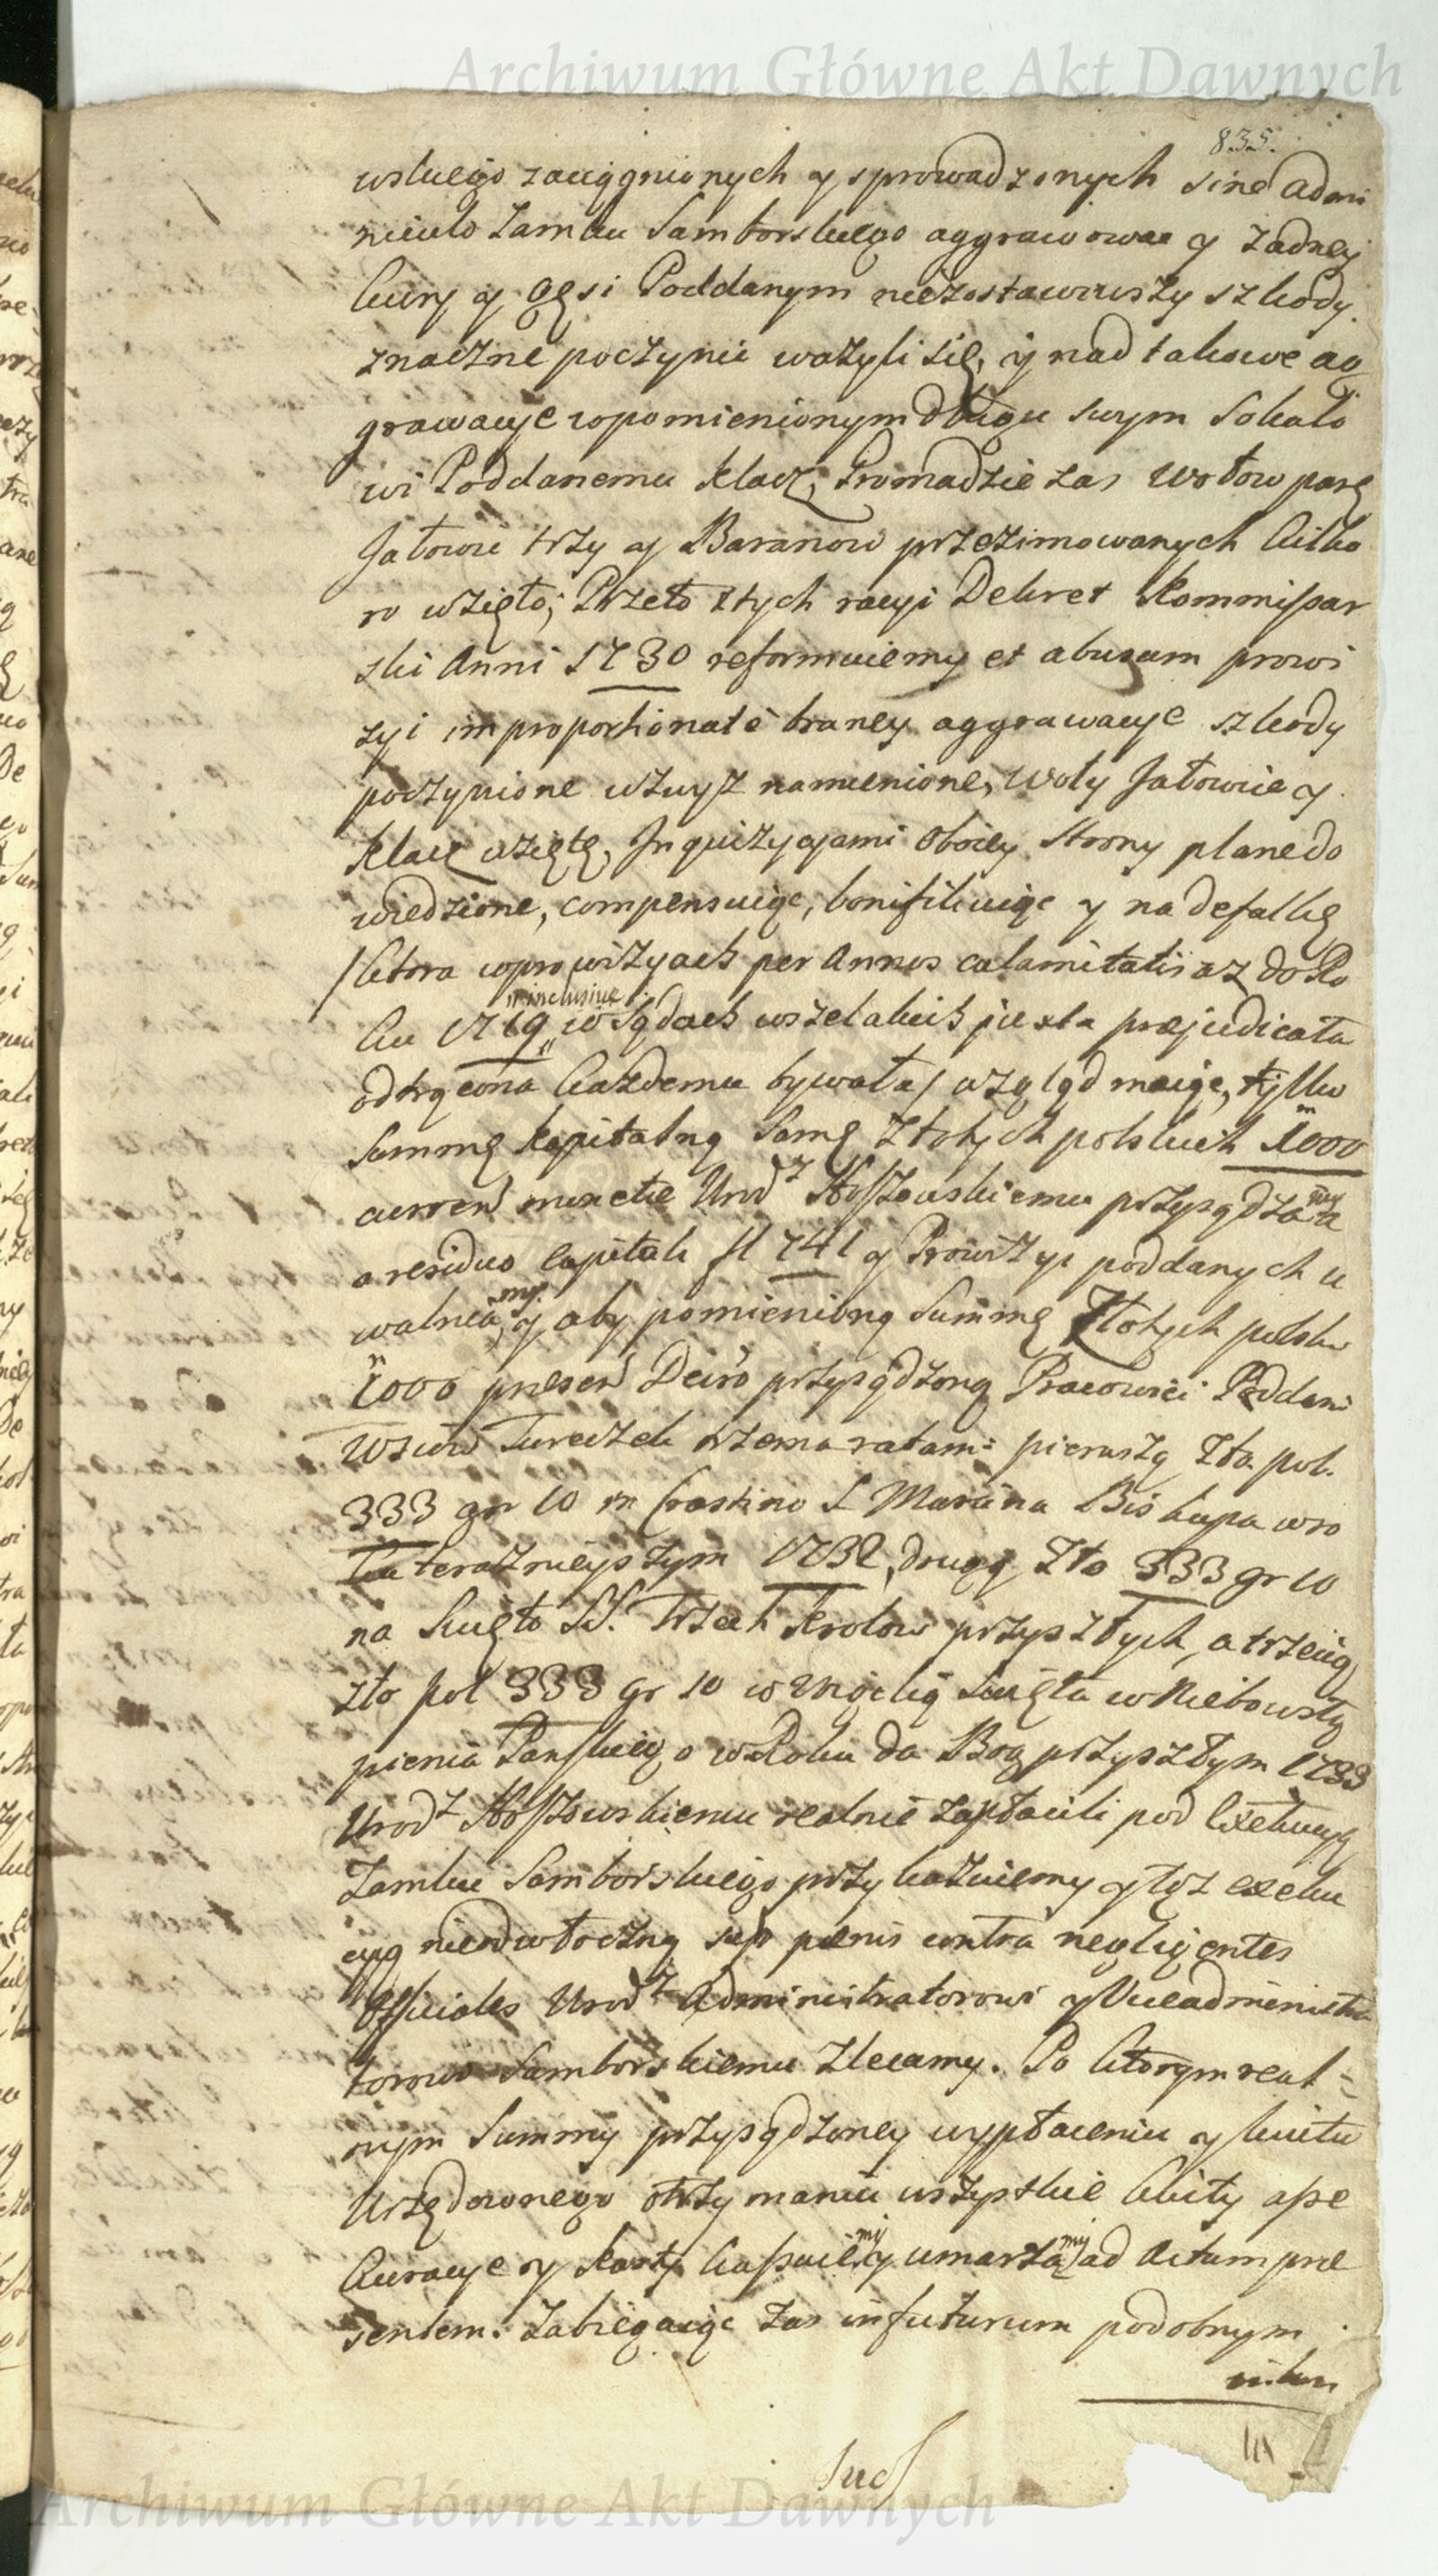 Archiwum Główne Akt Dawnych
835.
wskiego zaciągnionych y sprowadzonych sine admi
niculo Zamku Samborskiego aggrawować y żadney
kury y gęsi Poddanym niezostawiwszy szkody
znaczne poczynić ważyli się, y nad takowe ag
grawacye wpomienionym długu swym Sokało
wi Poddanemu klacz, Gromadzie zas wołow parę
Jałowic trzy y Baranow przezimowanych kilko
ro wzięto; Przeto z tych racyi Dekret Kommissar
ski Anni 1730 reformuiemy et abusum prowi
zyi improportionatè braney aggrawacye szkody
poczynione wzwyż namienione, woły Jałowice y
klacz wziętę, Inquizycyami oboiey strony plane do
wiedzione, compensuiąc, bonifikuiąc y na defalkę
/ktora w prowizyach per Annos calamitatis az do Ro
ku 1719 inclusive w Sądach wszelakich juxta præjudicata
odtrącona każdemu bywała/ wzgląd maiąc, tylko
Summę kapitalną samę złotych polskich 1000
curren monetæ Urodz Hoszowskiemu przysądzamy
a residuo capitali fl 741 y Prowizyi poddanych u
walniamy, y aby pomienioną Summę Złotych polsk
1000 præsen Decrō przysądzoną Pracowici Poddani
Wsiow Tureczek trzema ratami pierwszą zło pol.
333 gr 10 in Crastino S Marcina Biskupa w ro
ku teraznieyszym 1732, drugą zło 333 gr 10
na Swięto SS. Trzech Krolow przyszłych, a trzecią
zło pol 333 gr 10 w Wigilią Swięta w Niebowstą
pienia Panskiego w Roku da Bog przyszłym 1733
Urodz Hoszowskiemu realnie zapłacili pod Exekucyą
Zamku Samborskiego przykazuiemy y tęz exeku
cyą nieodwłoczną sub pœnis contra negligentes
Officiales Urodz Administratorowi y Viceadministra
torowi Samborskiemu zlecamy. Po ktorym real-
nym Summy przysądzoney wypłaceniu y kwitu
Urzędownego otrzymaniu wszystkie kwity asse
kuracye y karty kassuiemy y umarzamy ad Actum præ
sentem. Zabiegaiąc zas in futurum podobnym
Archiwum Główne Akt Dawnych